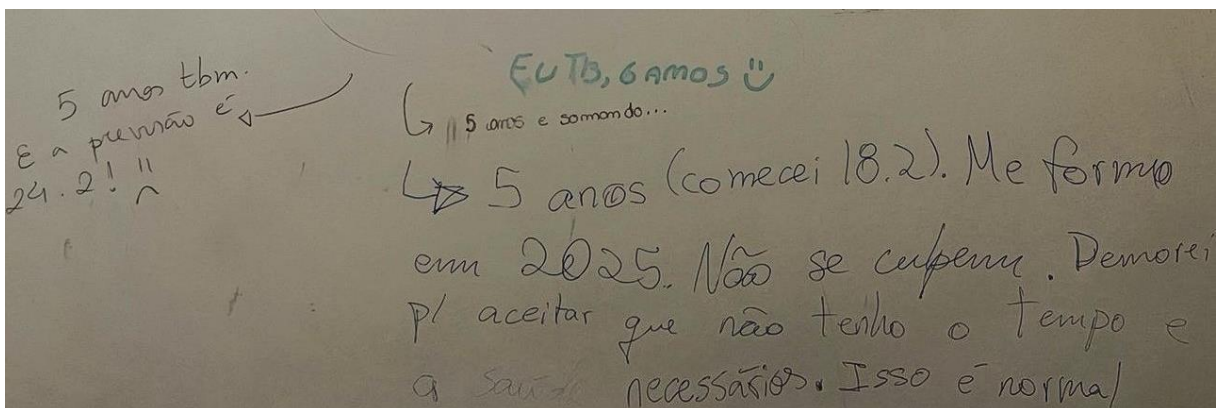 5 anos tbm.
E a previsão é
24.2!
EU TB, 6 AMOS
5 anos e somando...
5 anos (comecei 18.2). Me formo
em 2025. Não se culpem. Demorei
p/ aceitar que não tenho o tempo e
a saúde necessários. Isso é normal